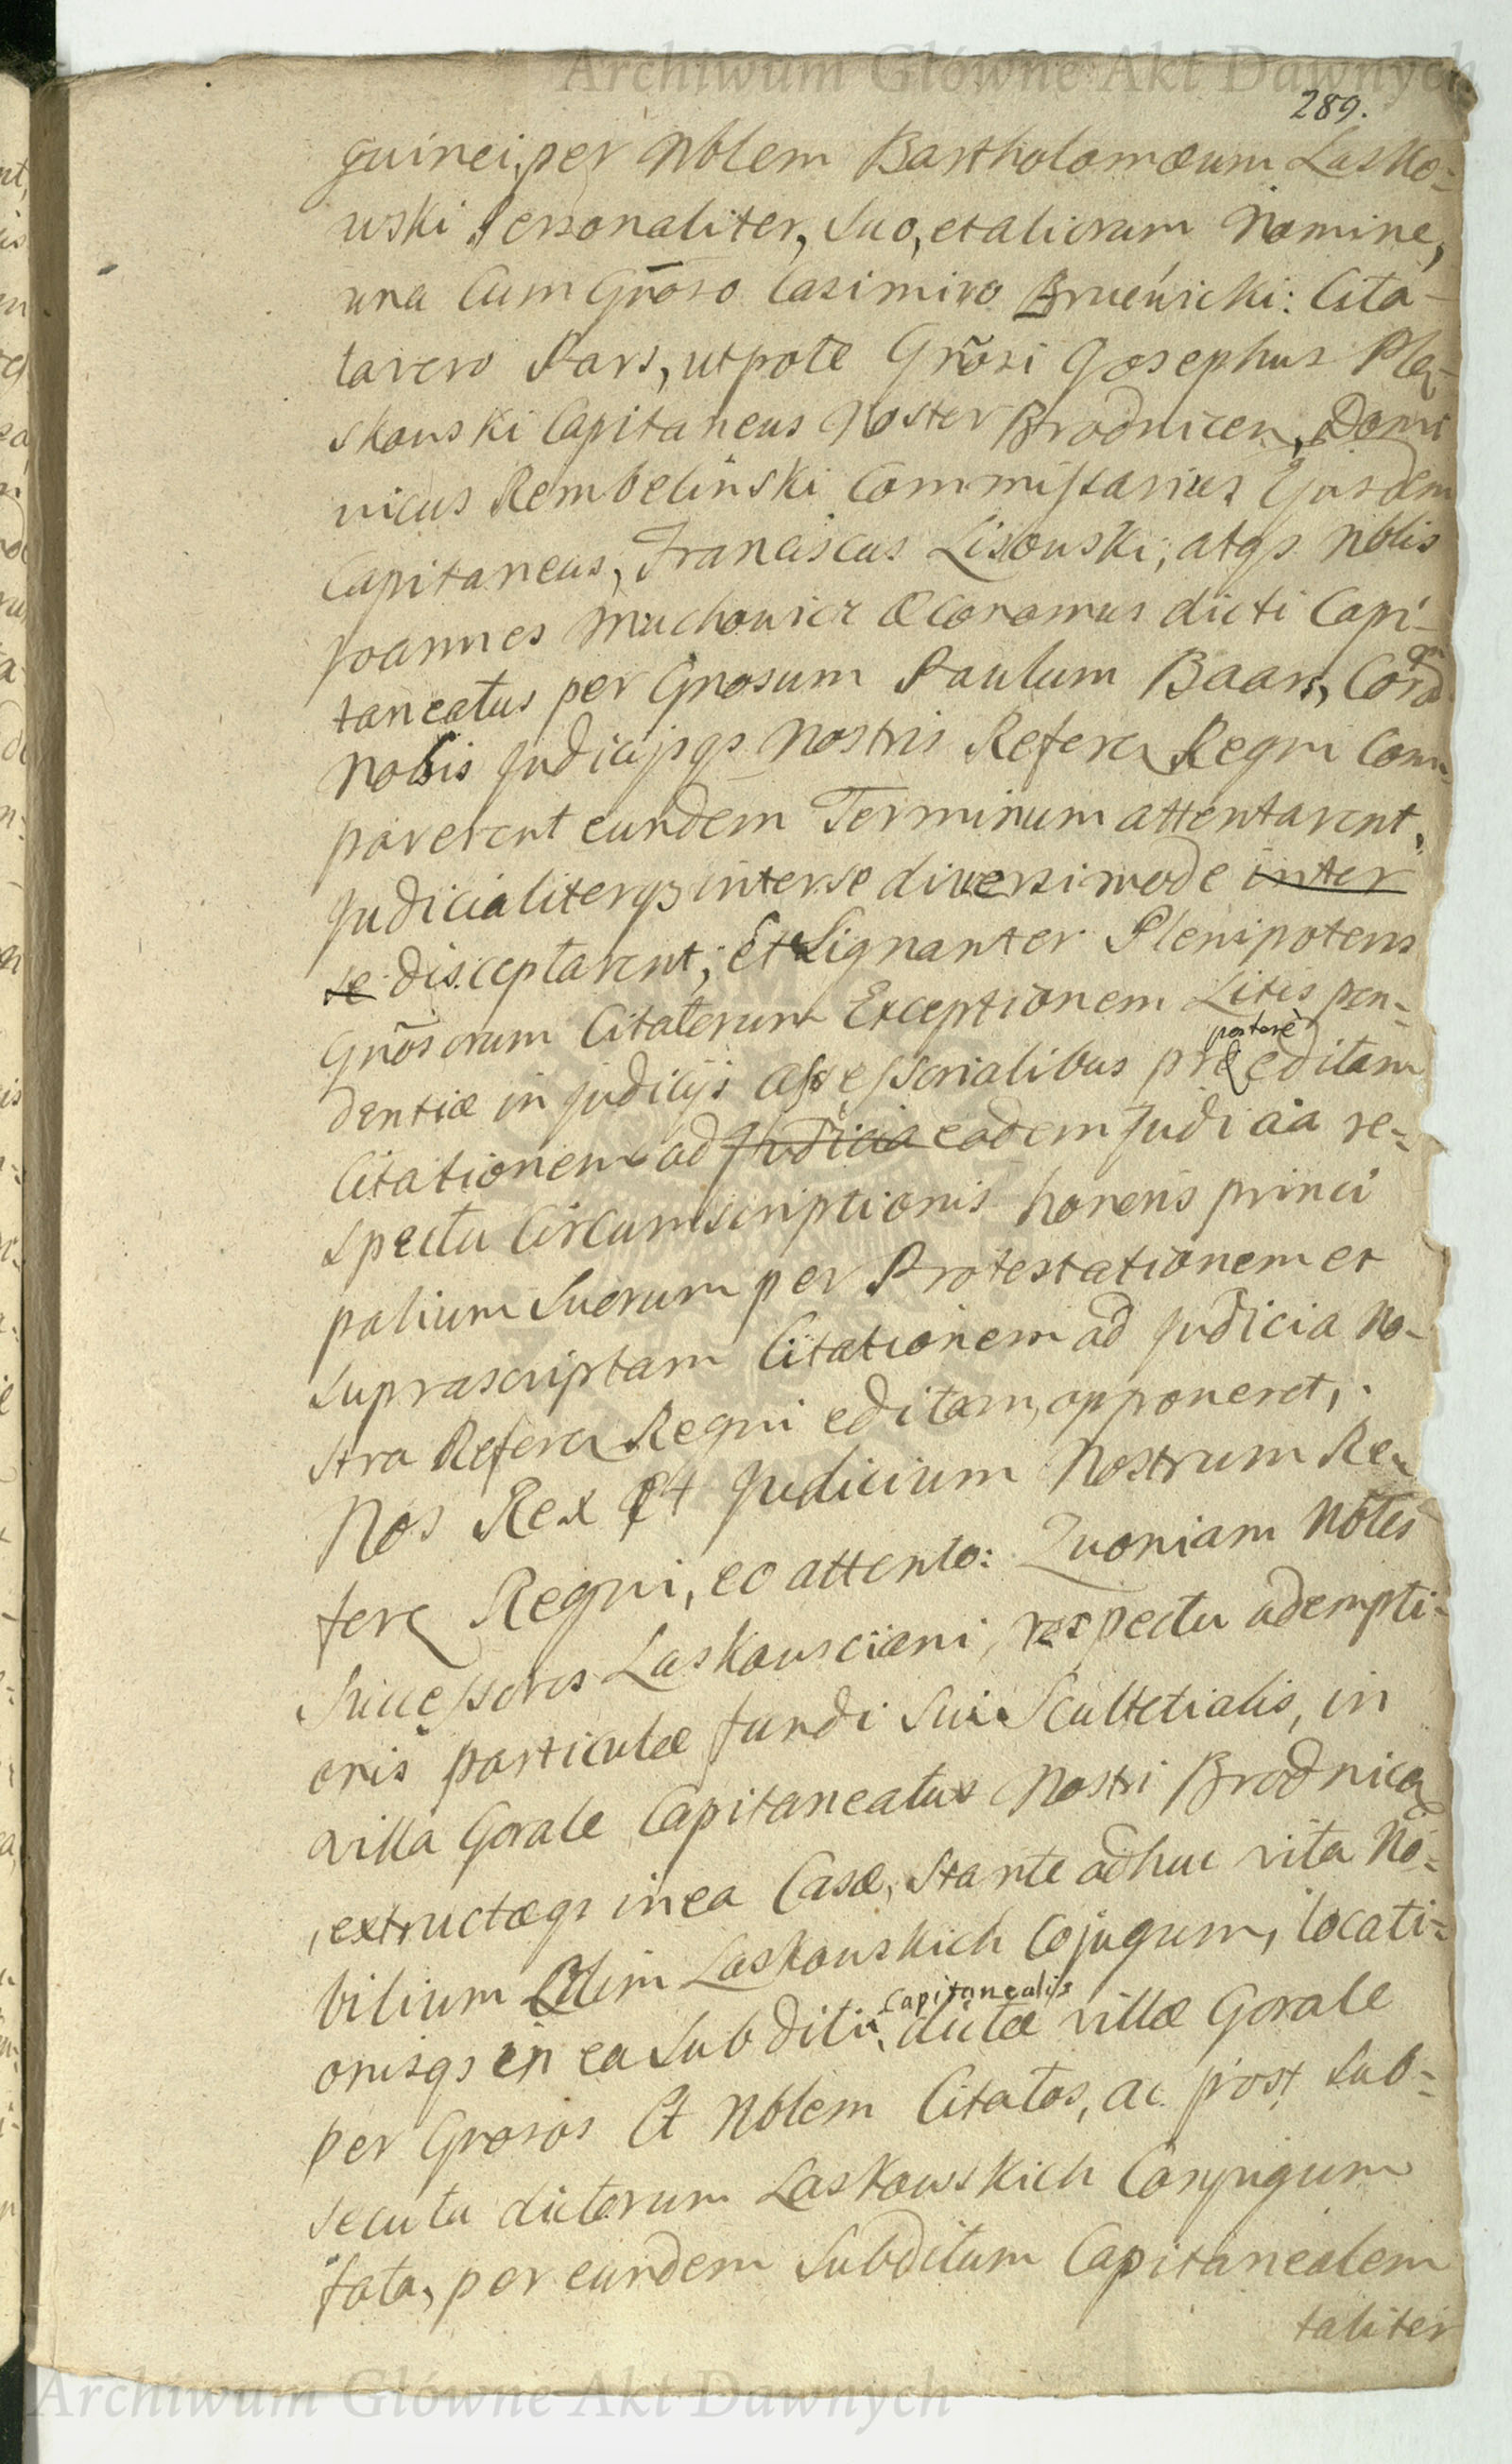 Archiwum Główne Akt Dawnych
289.
guinei, per Nblem Bartholomæum Lasko=
wski Personaliter, Suo, et aliorum Nomine,
una Cum Gnõso Casimiro Bruẃnicki: Cita-
ta vero Pars, utpote Gnõsi Josephus Plą-
skowski Capitaneus Noster Brodnicen, Domi
nicus Rembelinski Commissarius Ejusdem
Capitaneus, Franciscus Lisowski, atqs Nblis
Joannes Muchowicz Œconomus dicti Capi-
taneatus per Gnosum Paulum Baar, Corā
Nobis Judicijsqs Nostris Refer Regni Com-
parerent eundem Terminum attentarent,
Judicialiterqs inter se diversimode inter
se disceptarent; Et Signanter Plenipotens
Gnõsorum Citatorum Exceptionem Litis pen-
dentiæ in Judicijs Assessorialibus per
postore
editam
Citationem ad Judicia eadem Judicia re-
spectu Circumscriptionis honoris princi
palium Suorum per Protestationem et
Suprascriptam Citationem ad Judicia No-
stra Refer Regni editam, opponeret,
Nos Rex Et Judicium Nostrum Re-
fer Regni, eo attento: Quoniam Nbles
Successores Laskowsciani, respectu adempti-
onis particulæ fundi Sui Scultetialis, in
villa Gorale Capitaneatus Nostri Brodnicen
, extructæqs in ea Casæ, Stante adhuc vita No=
bilium Olim Laskowskich Cojugum, locati=
onisqs in ea Subditi
Capitanealis
dictæ villæ Gorale
per Gnosos Et Nblem Citatos, ac post Sub=
secuta dictorum Laskowskich Conjugum
fata, per eundem Subditum Capitanealem
taliter
Archiwum Główne Akt Dawnych